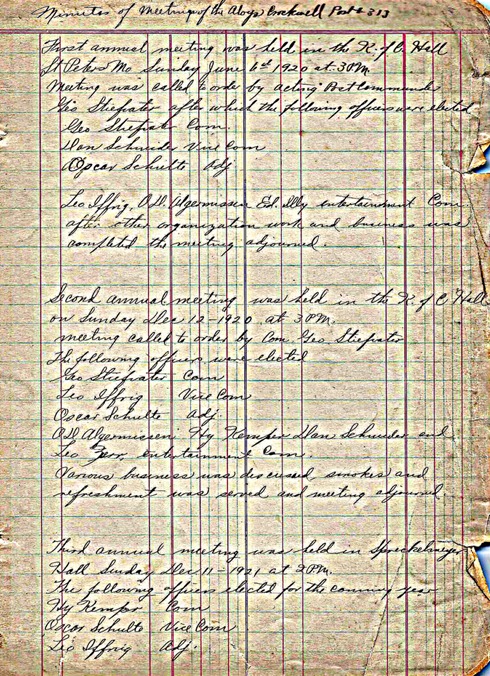 Minutes of Meetings of the Aloys Crockwell Post # 313
First annual meeting was held in the K. of C. Hall
St Peters Mo Sunday June 6th 1920 at 3 P.M.
Meeting was called to order by acting Post Commander
Geo Stiefrater after which the following officers were elected
Geo Stiefrater Com.
Dan Schneider Vice Com
Oscar Schulte Adj
Leo Iffrig, O.D. Algermissen Ed. entertainment Com
after other organization work and business was
completed the meeting adjourned.
Second annual meeting was held in the K. of C. Hall
on Sunday Dec 12 - 1920 at 3 P.M.
meeting called to order by Com. Geo Stiefrater
The following officers were elected
Geo Stiefrater Com
Leo Iffrig Vice Com
Oscar Schulte Adj.
O.D. Algermissen Hy Kemper Dan Schneider and
Leo entertainment Com.
Various business was discussed, smokes and
refreshment was served and meeting adjourned.
Third annual meeting was held in Spreckelmeyer
Hall Sunday Dec 11 - 1921 at 2 P.M.
The following officers elected for the comming year
Hy Kemper Com
Oscar Schulte Vice Com
Leo Iffrig Adj.